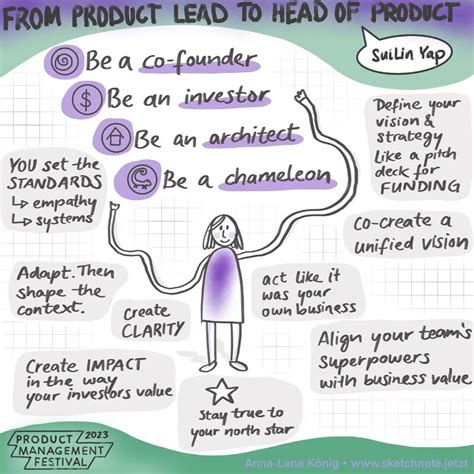 FROM PRODUCT LEAD TO HEAD OF PRODUCT
SuiLin Yap
Be a co-founder
$ Be an investor
Be an architect
Be a chameleon
Define your
vision &
strategy
Like a pitch
deck for
FUNDING
YOU set the
STANDARDS
↳ empathy
↳ systems
Co-create a
unified vision
Adapt. Then
shape the
context.
Create
CLARITY
act like it
was your
own business
Create IMPACT
in the way
your investors value
Align your team's
Superpowers
with business value
Stay true to
your north star
PRODUCT 2023
MANAGEMENT
FESTIVAL
Anna-Lena König • www.sketchnote.jetzt